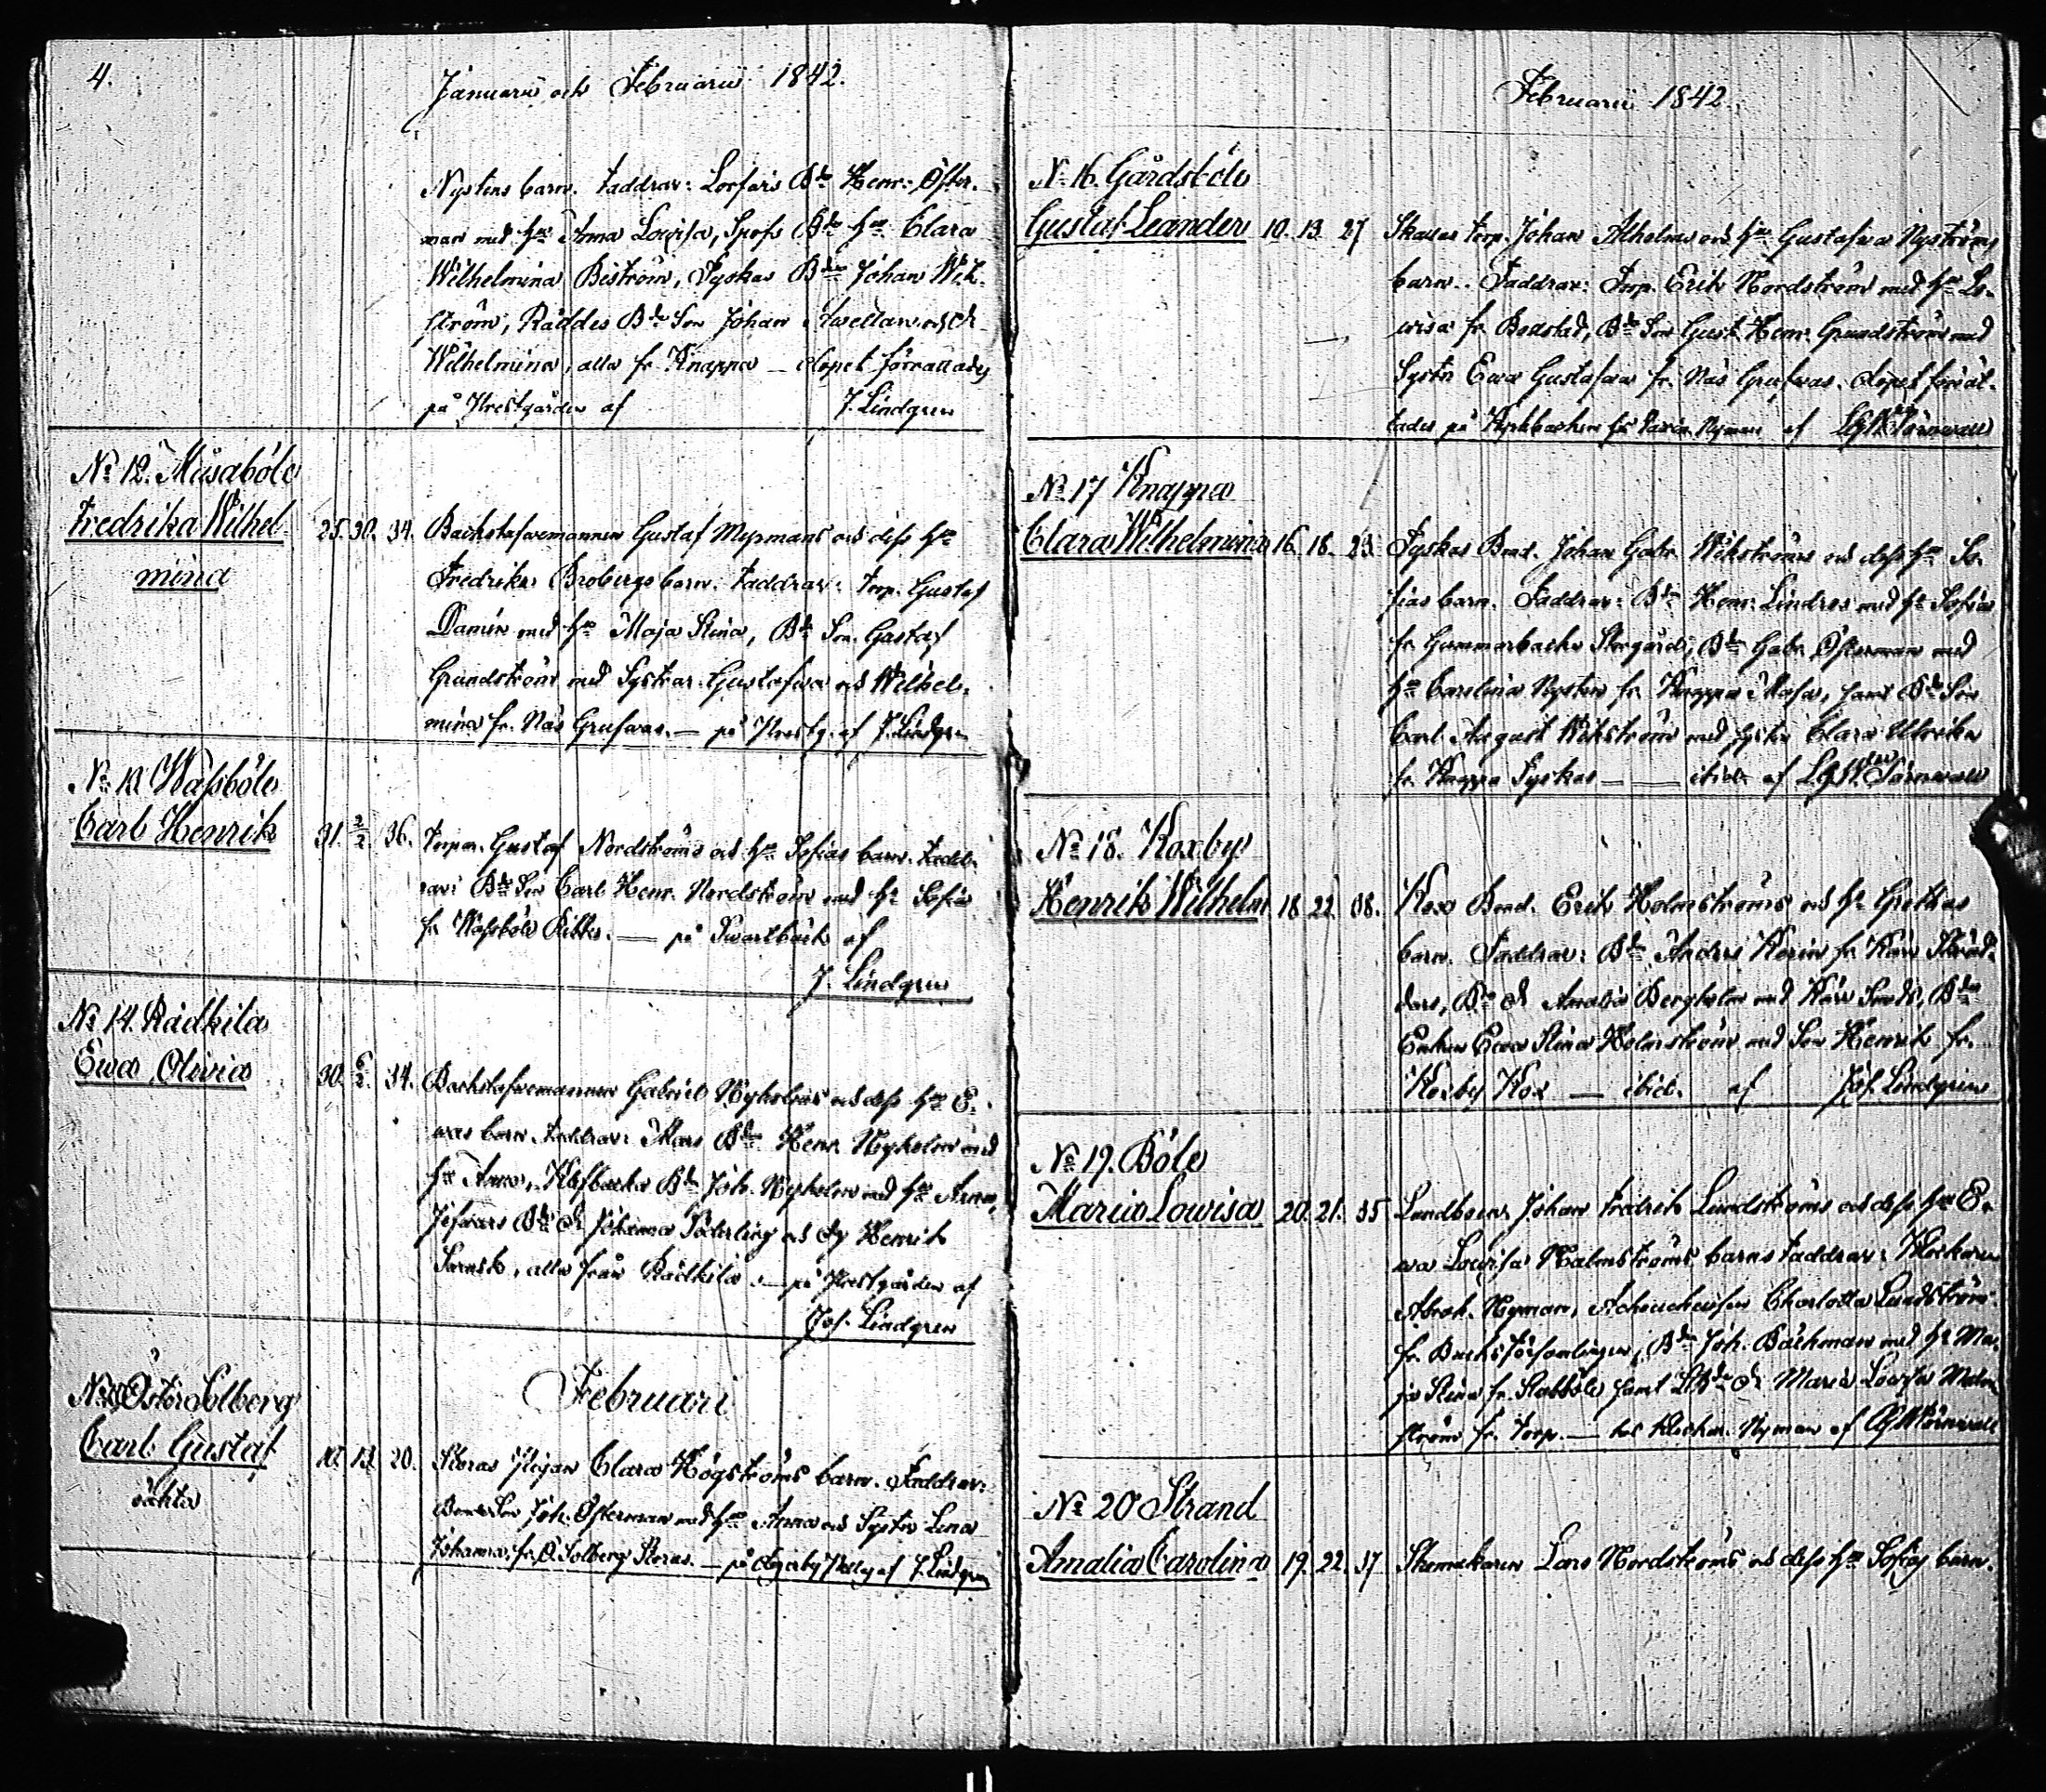 4.
Januarii och Februarii 1842.
Nystens barn. Faddrar: Lorfars Bdn Henr: Öster-
man med hu Anna Lovisa, Bdn hu Clara
Wilhelmina Biström, Tyskas Bdn Johan Wik-
ström, Räddes Bde Son Johan Awellan och
Wilhelmina, alla fr. Knappa — dopet förrättades
på Prestgården af J. Lindgren
No 12. Musaböle
Fredrika Wilhel-
mina
25. 30. 34. Backstufvumannen Gustaf Myrmans och dess hu
Fredrikas Brobergs barn. Faddrar: Torp. Gustaf
Damin med hu Maja Stina, Bde Son Gustaf
Grundström med Systrar Gustafva och Wilhel-
mina fr. Näs Grufvas. — på Prestg. af J. Lindgren
No 13 Wåssböle
Carl Henrik
31. 2/2. 36. Torpar. Gustaf Nordströms och hu Sofias barn. Fadd-
rar: Bde Son Carl Henr. Nordström med hu Sofia
fr Wåssböle — på Svartbäck af
J. Lindgren
No 14. Rådkila
Ewa Olivia
30. 6/2. 34. Backstufvumannen Gabriel Nyholms och dess hu E-
was barn. Faddrar: Mars Bdn Henr. Nyholm med
hu Anna, Bdn Joh. Nyholm med hu Anna,
Bds dr Johanna Söderling och Dg Henrik
alla från Rådkila. — på Prestgården af
Jos. Lindgren
Februari
No 15 Öster Solberg
Carl Gustaf
oäkta
10. 13. 20. Storas Pigan Clara Högströms barn. Faddrar:
Bonde Son Joh. Österman med hu Anna och Syster Lena
Johanna, fr. Ö. Solberg Storas. — på af J. Lindgren
Februarii 1842.
No 16. Gårdsböle
Gustaf Leander 10. 13. 27 Skattas Torp. Johan Alholms och hu Gustafva Nyströms
barn. Faddrar: Torp. Erik Nordström med hu Lo-
visa fr. Bodstad, Bde Son Gust. Henr. Grundström med
Systr Ewa Gustafva fr. Näs Grufvas. dopet förrät-
tades på Kyrkbacken Nyman af LGW Törnwall
No 17 Knappa
Clara Wilhelmina 16. 18. 23. Tyskas Bond. Johan Gabr. Wikströms och dess hu So-
fias barn. Faddrar: Bdn Henr: Lindros med hu Sofia
fr Gammarbacka Storgårds, Bdn Gabr Österman med
hu Carolina Nysten fr. Knappa samt Bde Son
Carl August Wikström med syster Clara Ulrika
fr. Knappa Tyskas — ibid. af LGW Törnwall
No 18. Koxby
Henrik Wilhelm 18 22. 38. Kox Bond. Erik Holmströms och hu Grettas
barn. Faddrar: Bdn Anders Korin fr. Kärr Skräd-
dars, Bds dr Amalia Bergholm med Kärr Smeds, Bdn
Enkan Ewa Stina Holmström med Son Henrik fr.
Koxby Kox — ibid. af Jos. Lindgren
No 19. Böle
Maria Lovisa 20. 21. 35 Landboen Johan Fredrik Lundströms och dess hu E-
wa Lovisa Malmströms barn. Faddrar: Klockaren
Abrah. Nyman, Charlotta Lundström
fr. Församlingen, Bdn Joh. Bäckman med hu Ma-
ja Stina fr. Stabböle samt dr Maria Lovisa Malm-
ström fr. Torp. — hos Klockar. Nyman af LGW Törnwall
No 20 Strand
Amalia Carolina 19. 22. 37 Skomakaren Lars Nordströms och dess hu Sofias barn.